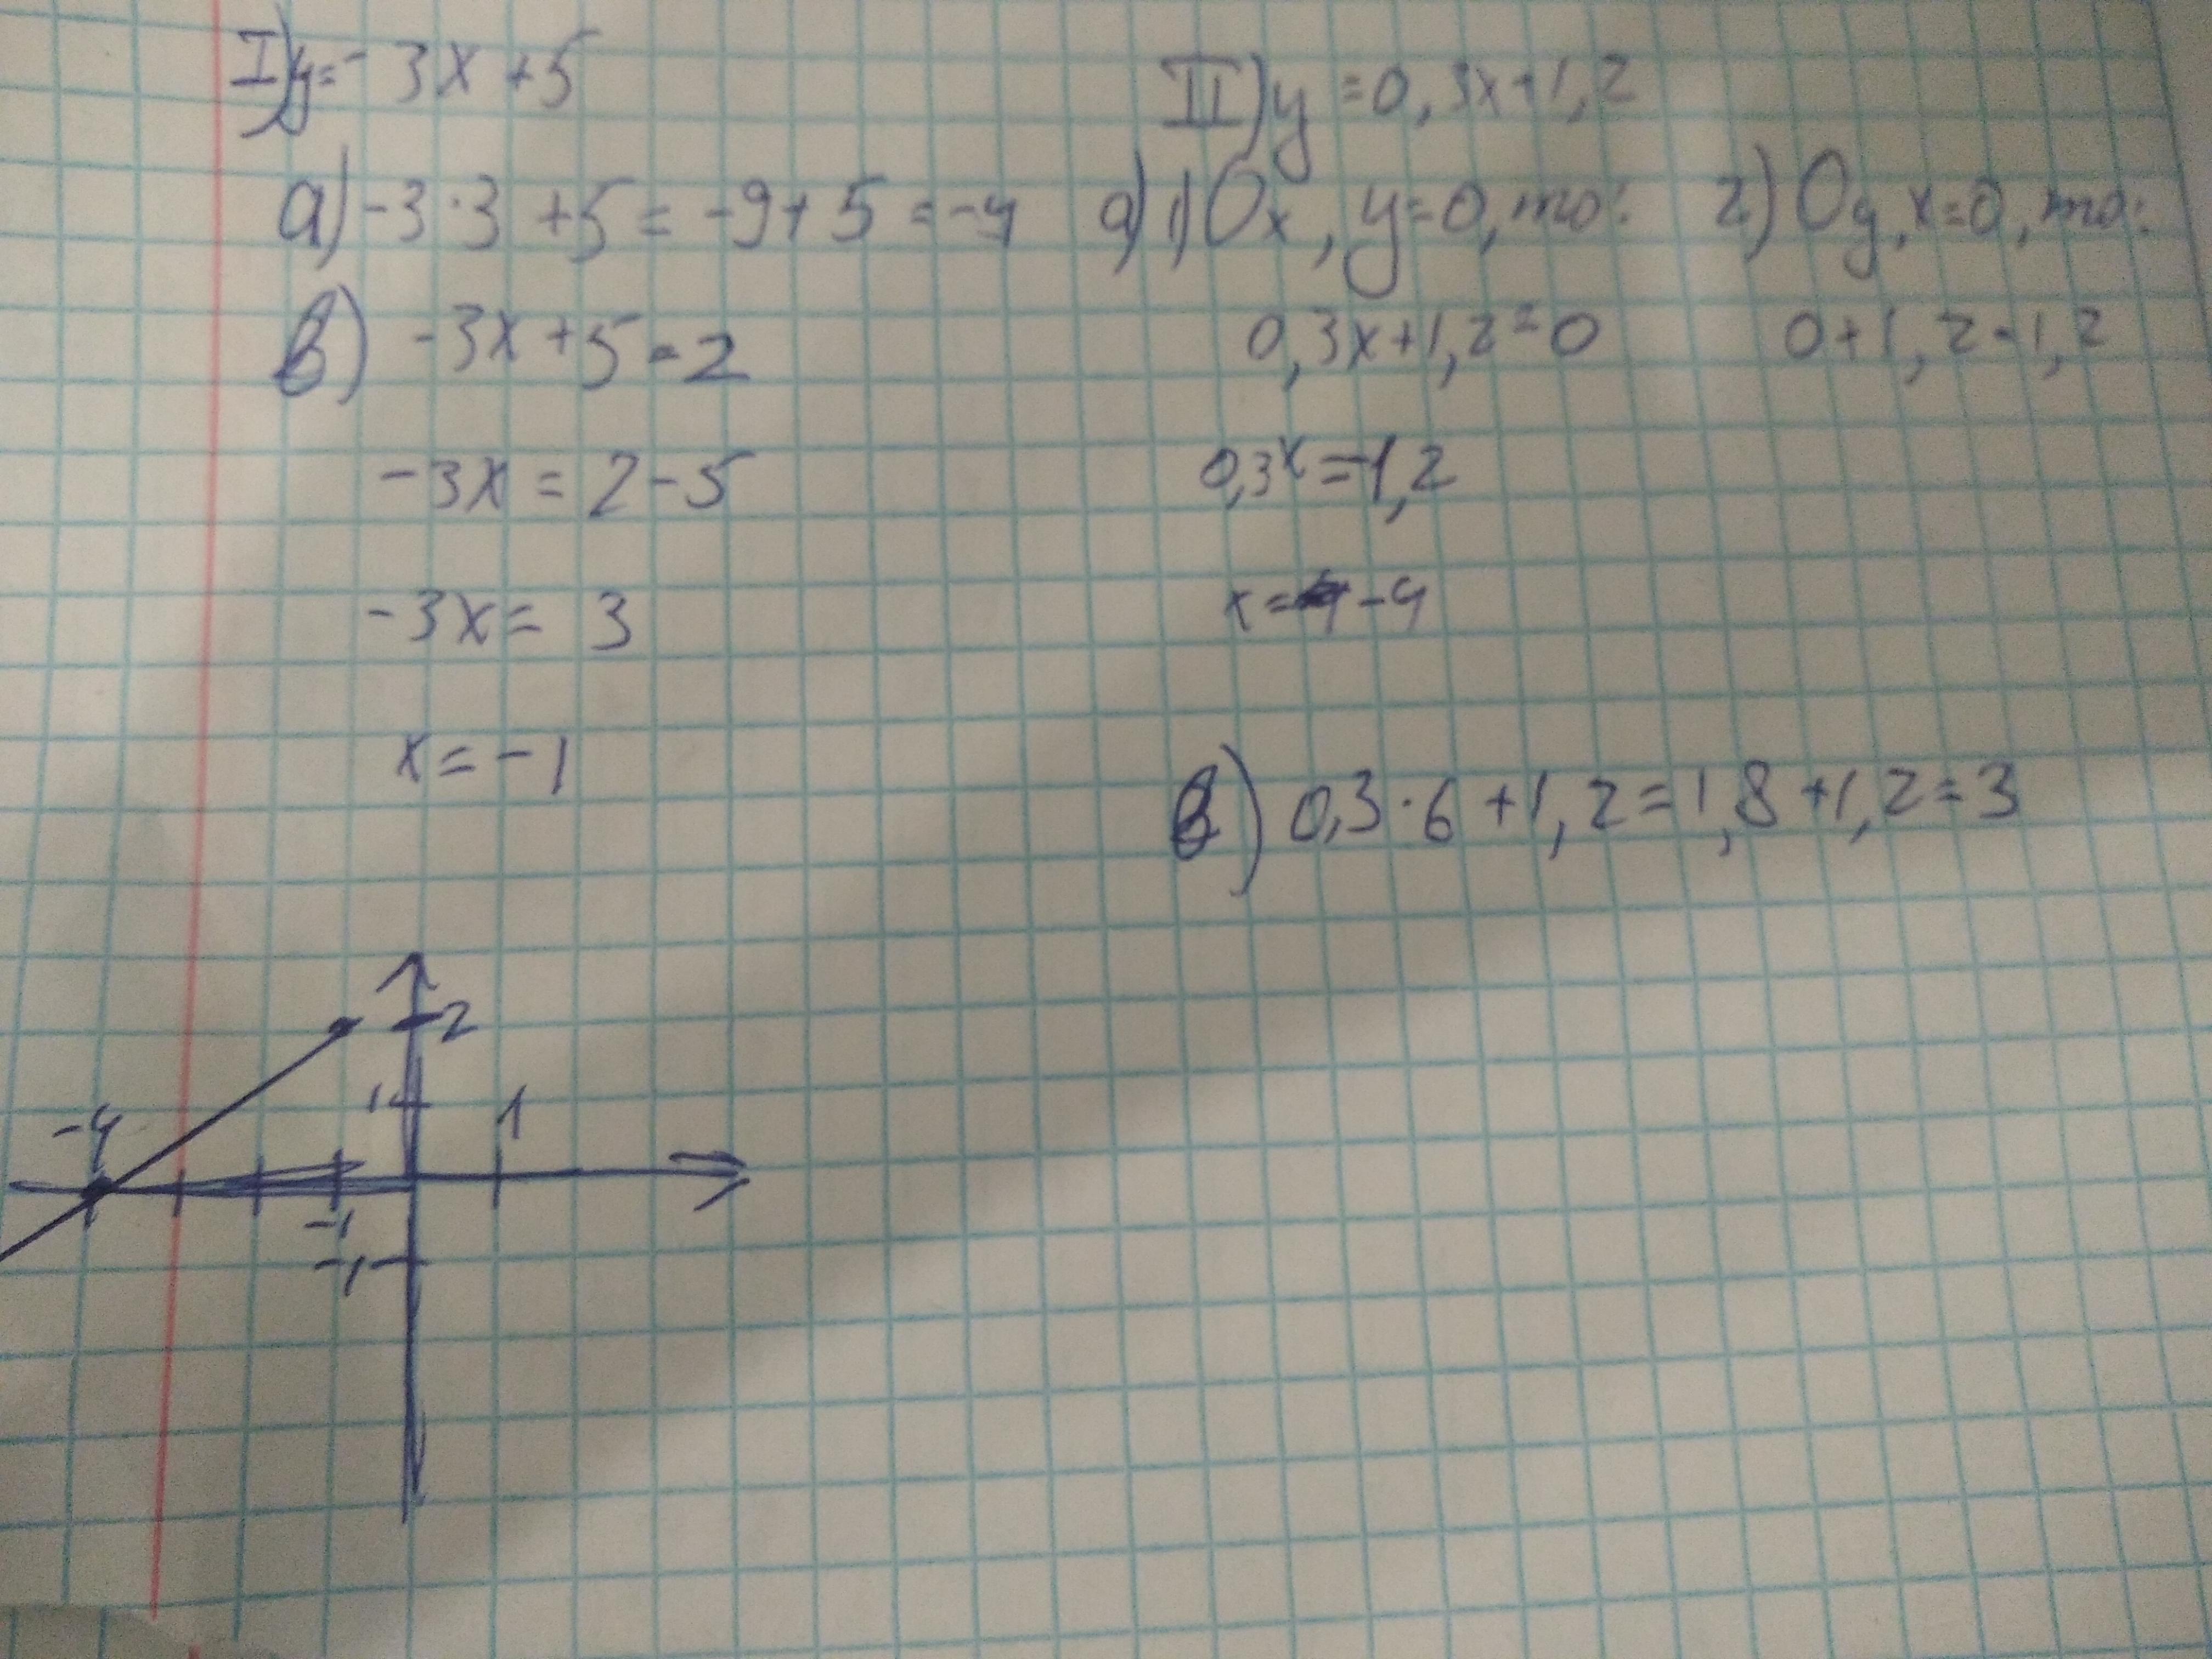 I) y=-3x+5
а) -3·3+5=-9+5=-4
в) -3x+5=2
-3x=2-5
-3x=3
x=-1
II) y=0,3x+1,2
а) 1) Ox, y=0, то:
0,3x+1,2=0
0,3x=-1,2
x=-4
2) Oy, x=0, то:
0+1,2=1,2
в) 0,3·6+1,2=1,8+1,2=3
2
1
-4
1
-1
-1